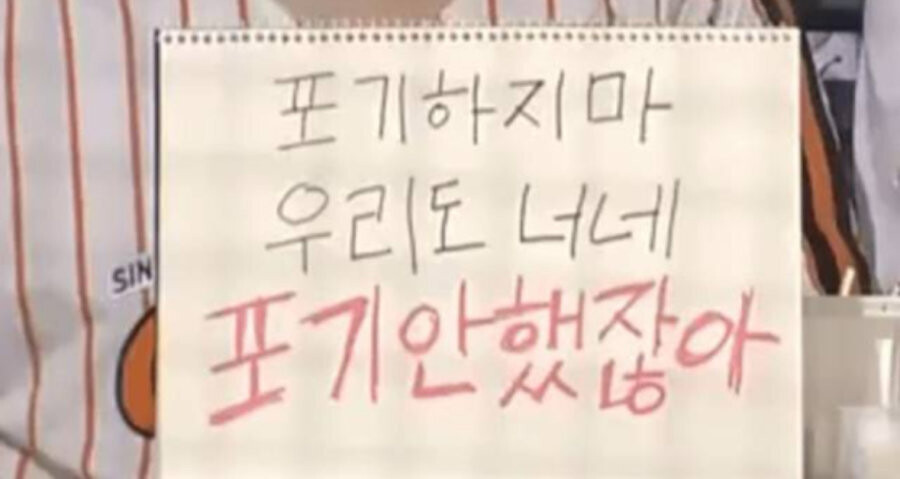 포기하지마
우리도 너네
포기안했잖아
SIN